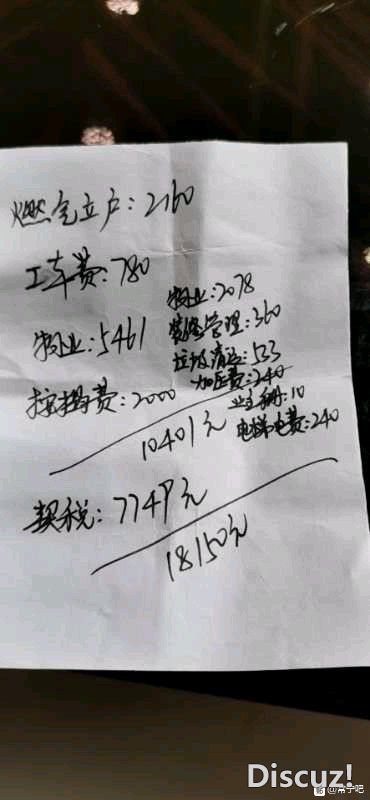 燃气立户：2160
工本费：780
物业：5461
物业：2078
装修管理：360
垃圾清运：533
加压费：240
业主手册：10
电梯电费：240
费：2000
10401元
契税：7749元
18150元
Discuz!
@常宁吧